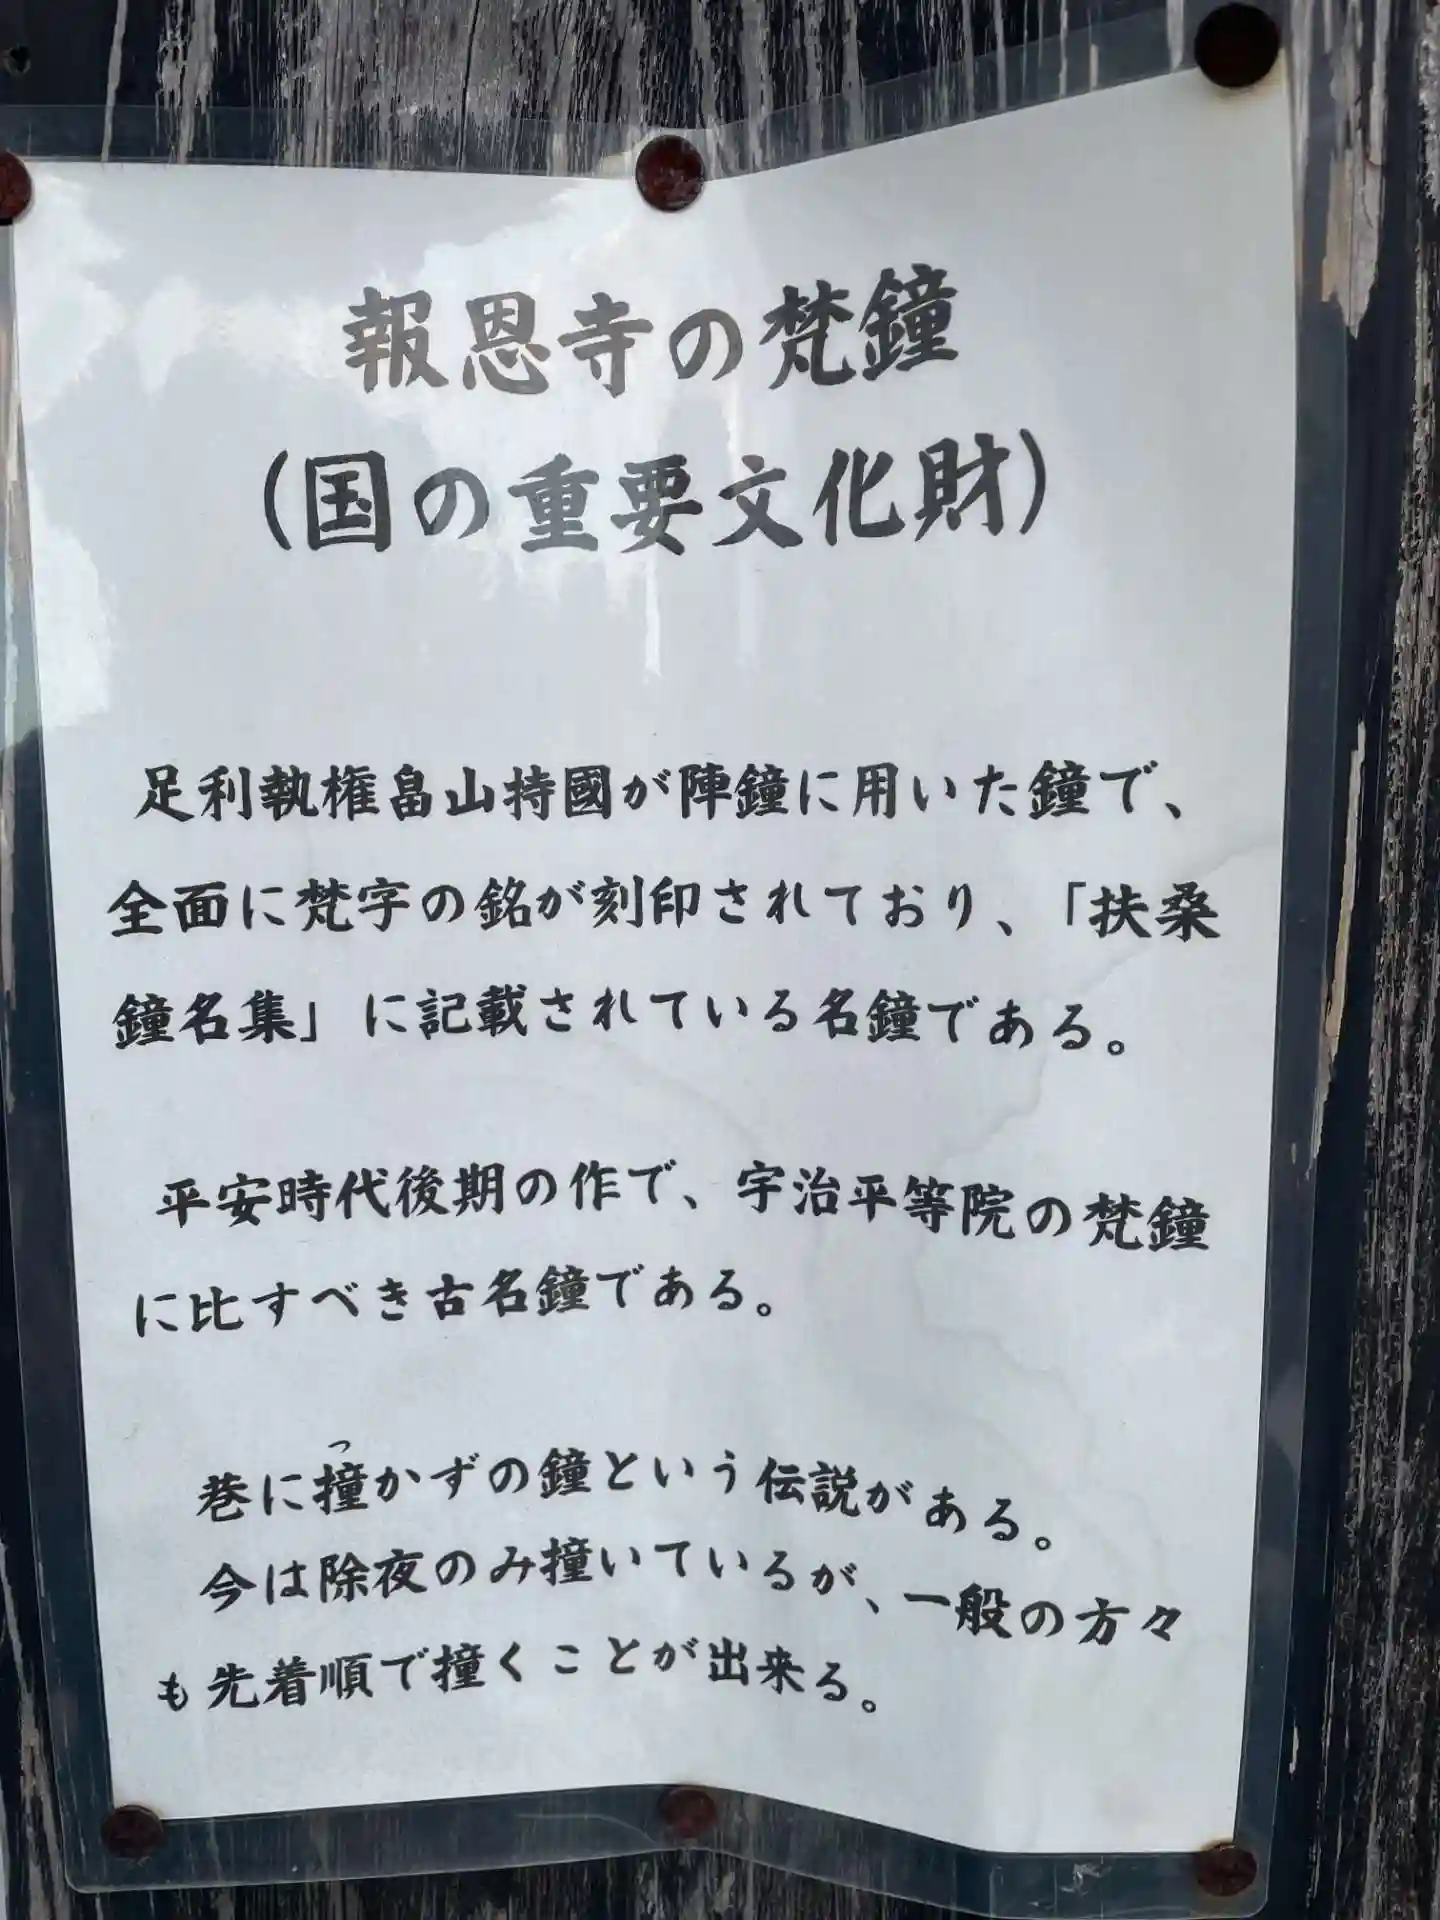 報恩寺の梵鐘
(国の重要文化財)
足利執権畠山持國が陣鐘に用いた鐘で、
全面に梵字の銘が刻印されており、「扶桑
鐘名集」に記載されている名鐘である。
平安時代後期の作で、宇治平等院の梵鐘
に比すべき古名鐘である。
つ
巷に撞かずの鐘という伝説がある。
今は除夜のみ撞いているが、一般の方々
も先着順で撞くことが出来る。